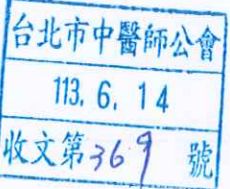 台北市中醫師公會
113. 6. 14
收文第369號